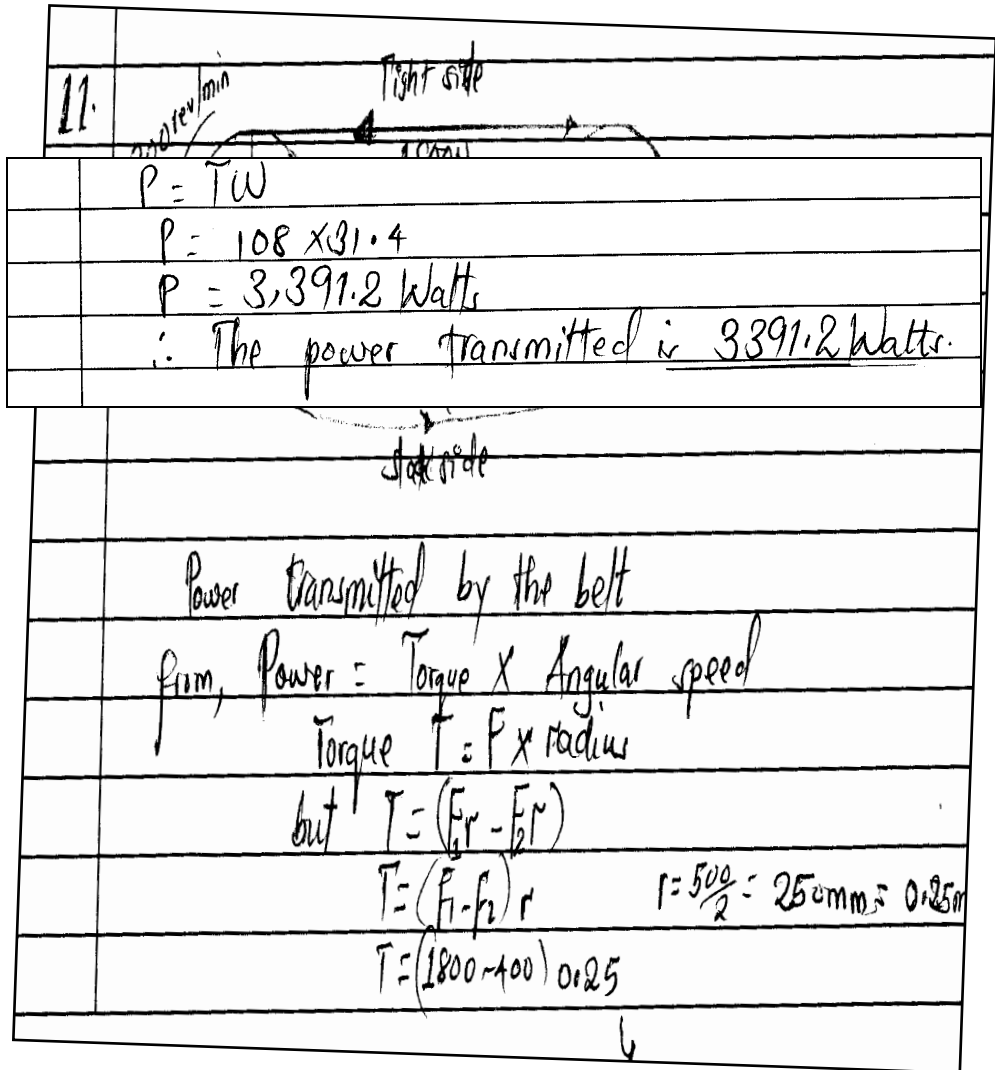 11.
Tight side
rev/min
P = TW
P = 108 X31.4
P = 3,391.2 Watts
∴ The power transmitted is 3391.2 Watts.
slack side
Power transmitted by the belt
from, Power = Torque X Angular speed
Torque T = F x radius
but T = (F₁r - F₂r)
T = (F₁-F₂) r r = 500/2 = 250mm = 0.25m
T = (1800-400) 0.25